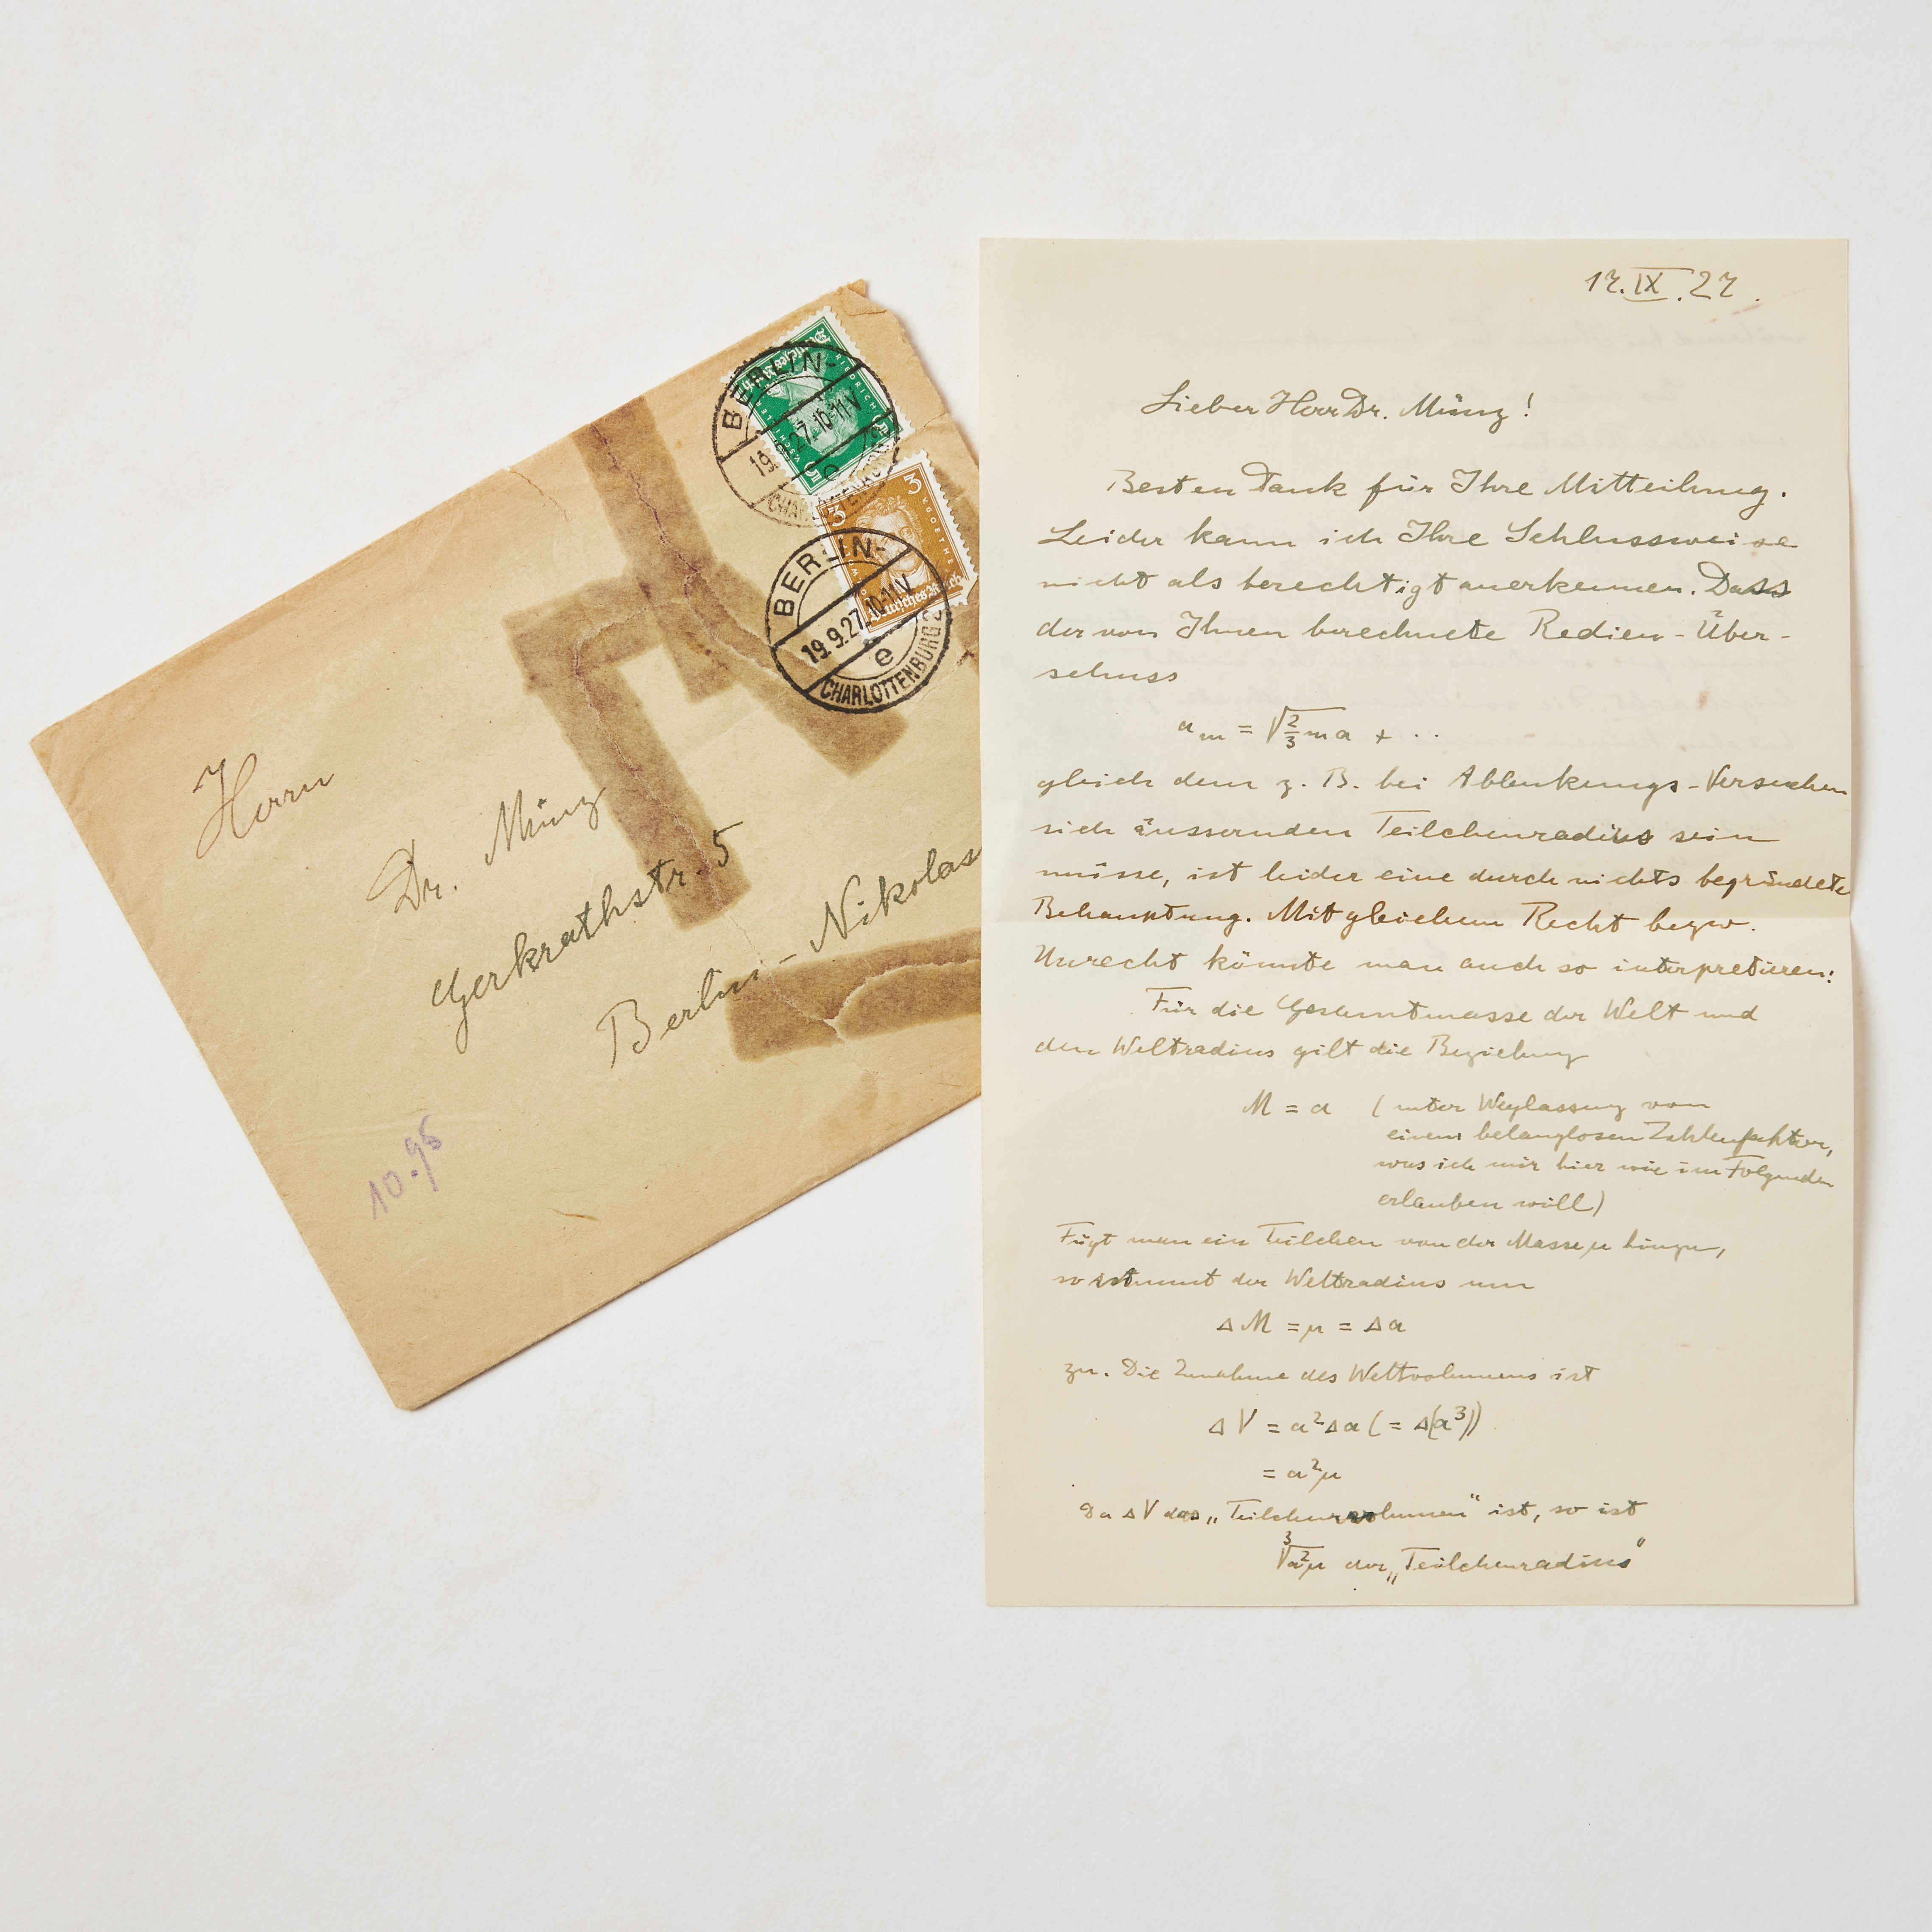 Herrn
Dr. Münz
Gerkrathstr. 5
Berlin-Nikolas
10.95
BERLIN-
19.9.27.10-11V
e
CHARLOTTENBURG
FRIEDRICH
Deutsches Reich
5
BERLIN-
19.9.27.10-11V
e
CHARLOTTENBURG 2
3
3
W. GOETHE
Deutsches Reich
17.IX.27.
Lieber Herr Dr. Münz!
Besten Dank für Ihre Mitteilung.
Leider kann ich Ihre Schlussweise
nicht als berechtigt anerkennen. Dass
der von Ihnen berechnete Radien-Über-
schuss
a_m = √(2/3 m a) + ..
gleich dem z. B. bei Ablenkungs-Versuchen
sich äussernden Teilchenradius sein
müsse, ist leider eine durch nichts begründete
Behauptung. Mit gleichem Recht bezw.
Unrecht könnte man auch so interpretieren:
Für die Gesamtmasse der Welt und
den Weltradius gilt die Beziehung
M = a (unter Weglassung von
einem belanglosen Zahlenfaktor,
was ich mir hier wie im Folgenden
erlauben will)
Fügt man ein Teilchen von der Masse μ hinzu,
so nimmt der Weltradius um
Δ M = μ = Δ a
zu. Die Zunahme des Weltvolumens ist
Δ V = a² Δ a (= Δ(a³))
= a² μ
Da Δ V das „Teilchenvolumen" ist, so ist
∛a²μ der „Teilchenradius"